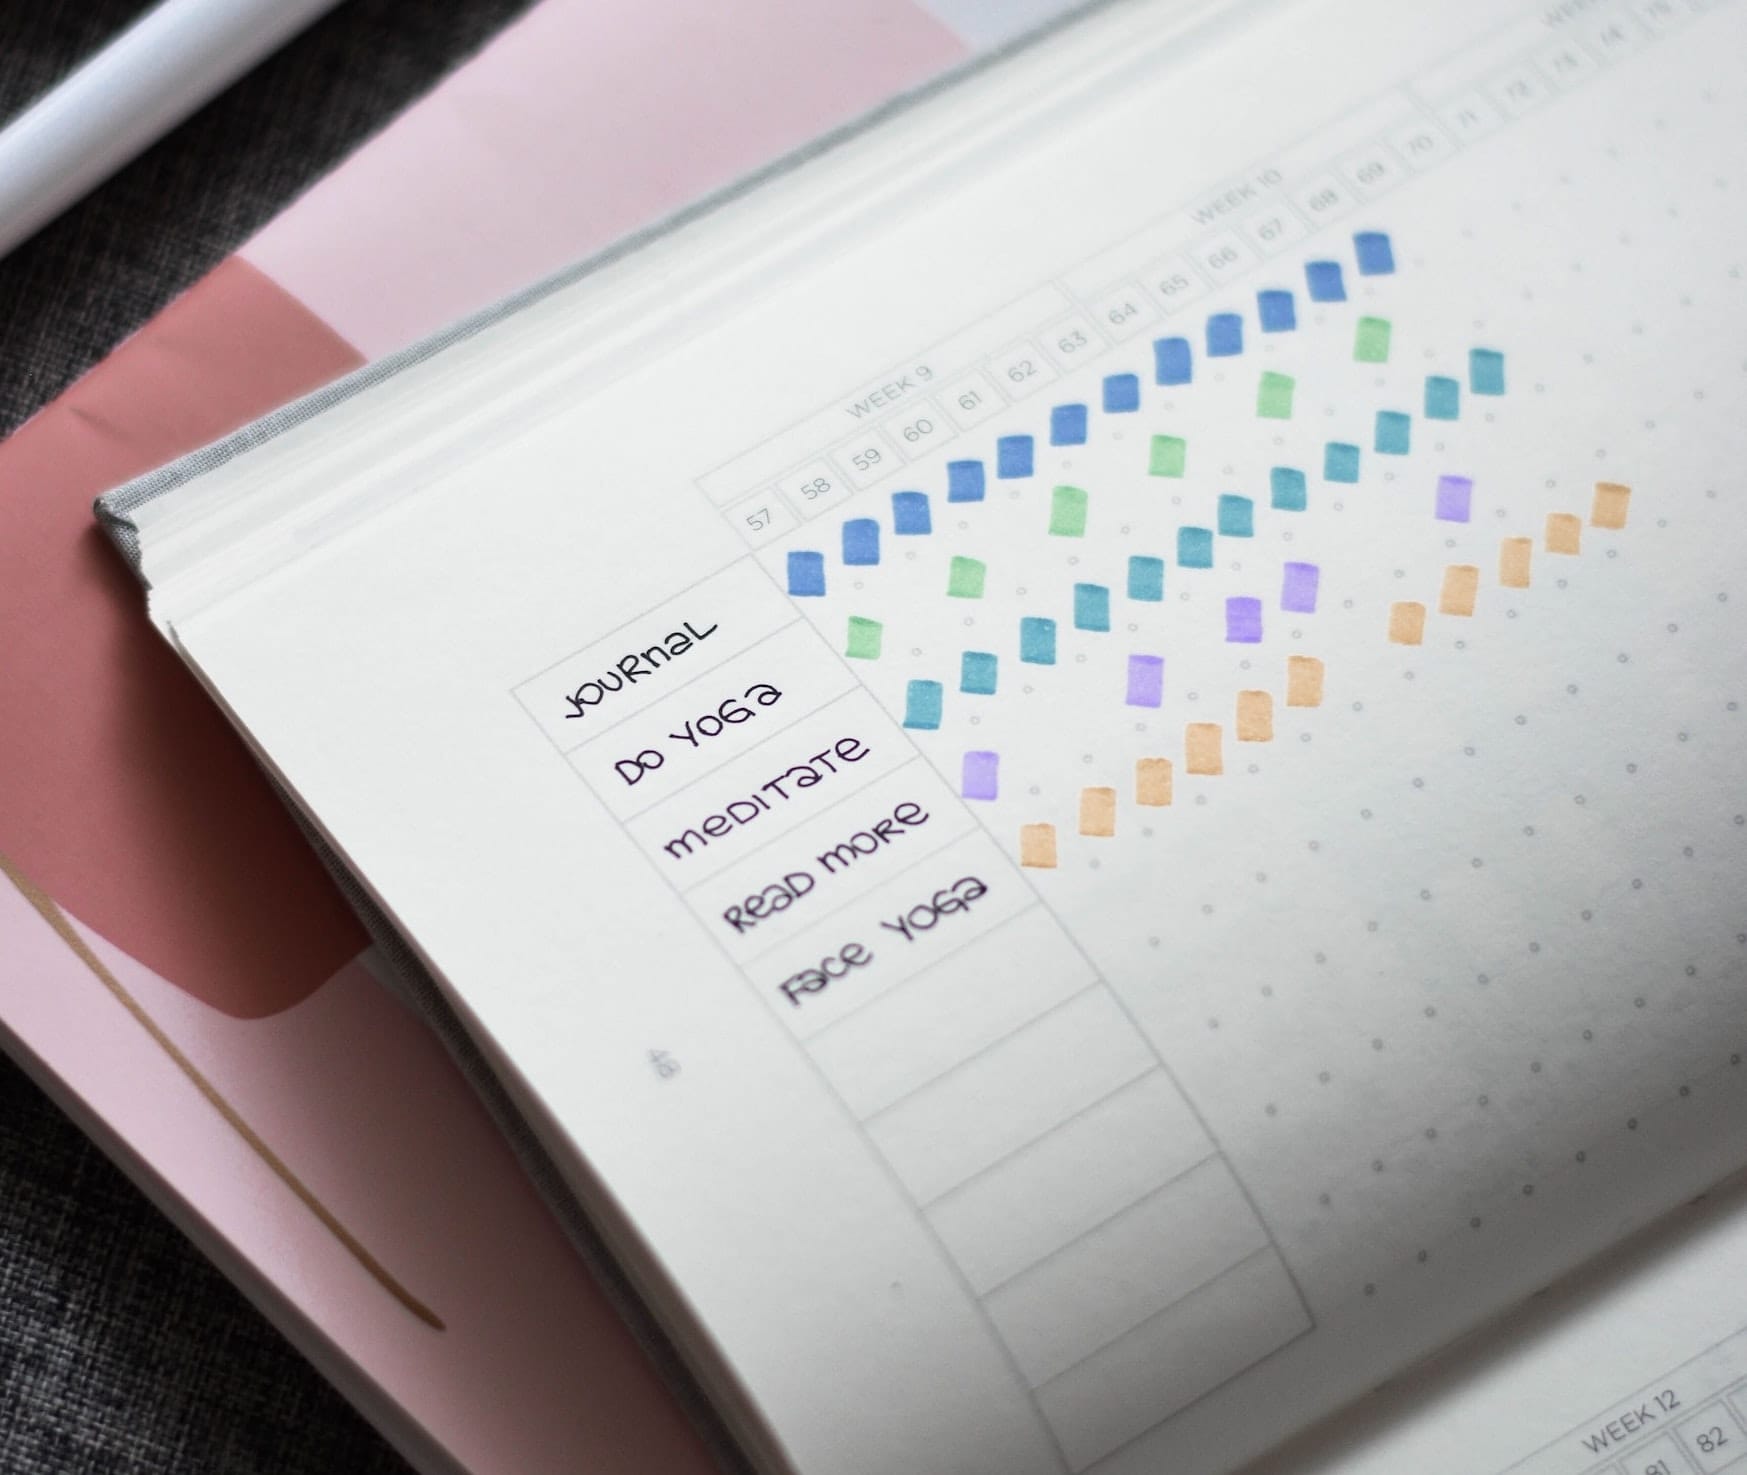 WEEK 9
WEEK 10
57 58 59 60 61 62 63 64 65 66 67 68 69 70 71 72 73 74 75
JOURNAL
DO YOGA
MEDITATE
READ MORE
FACE YOGA
WEEK 12
81 82